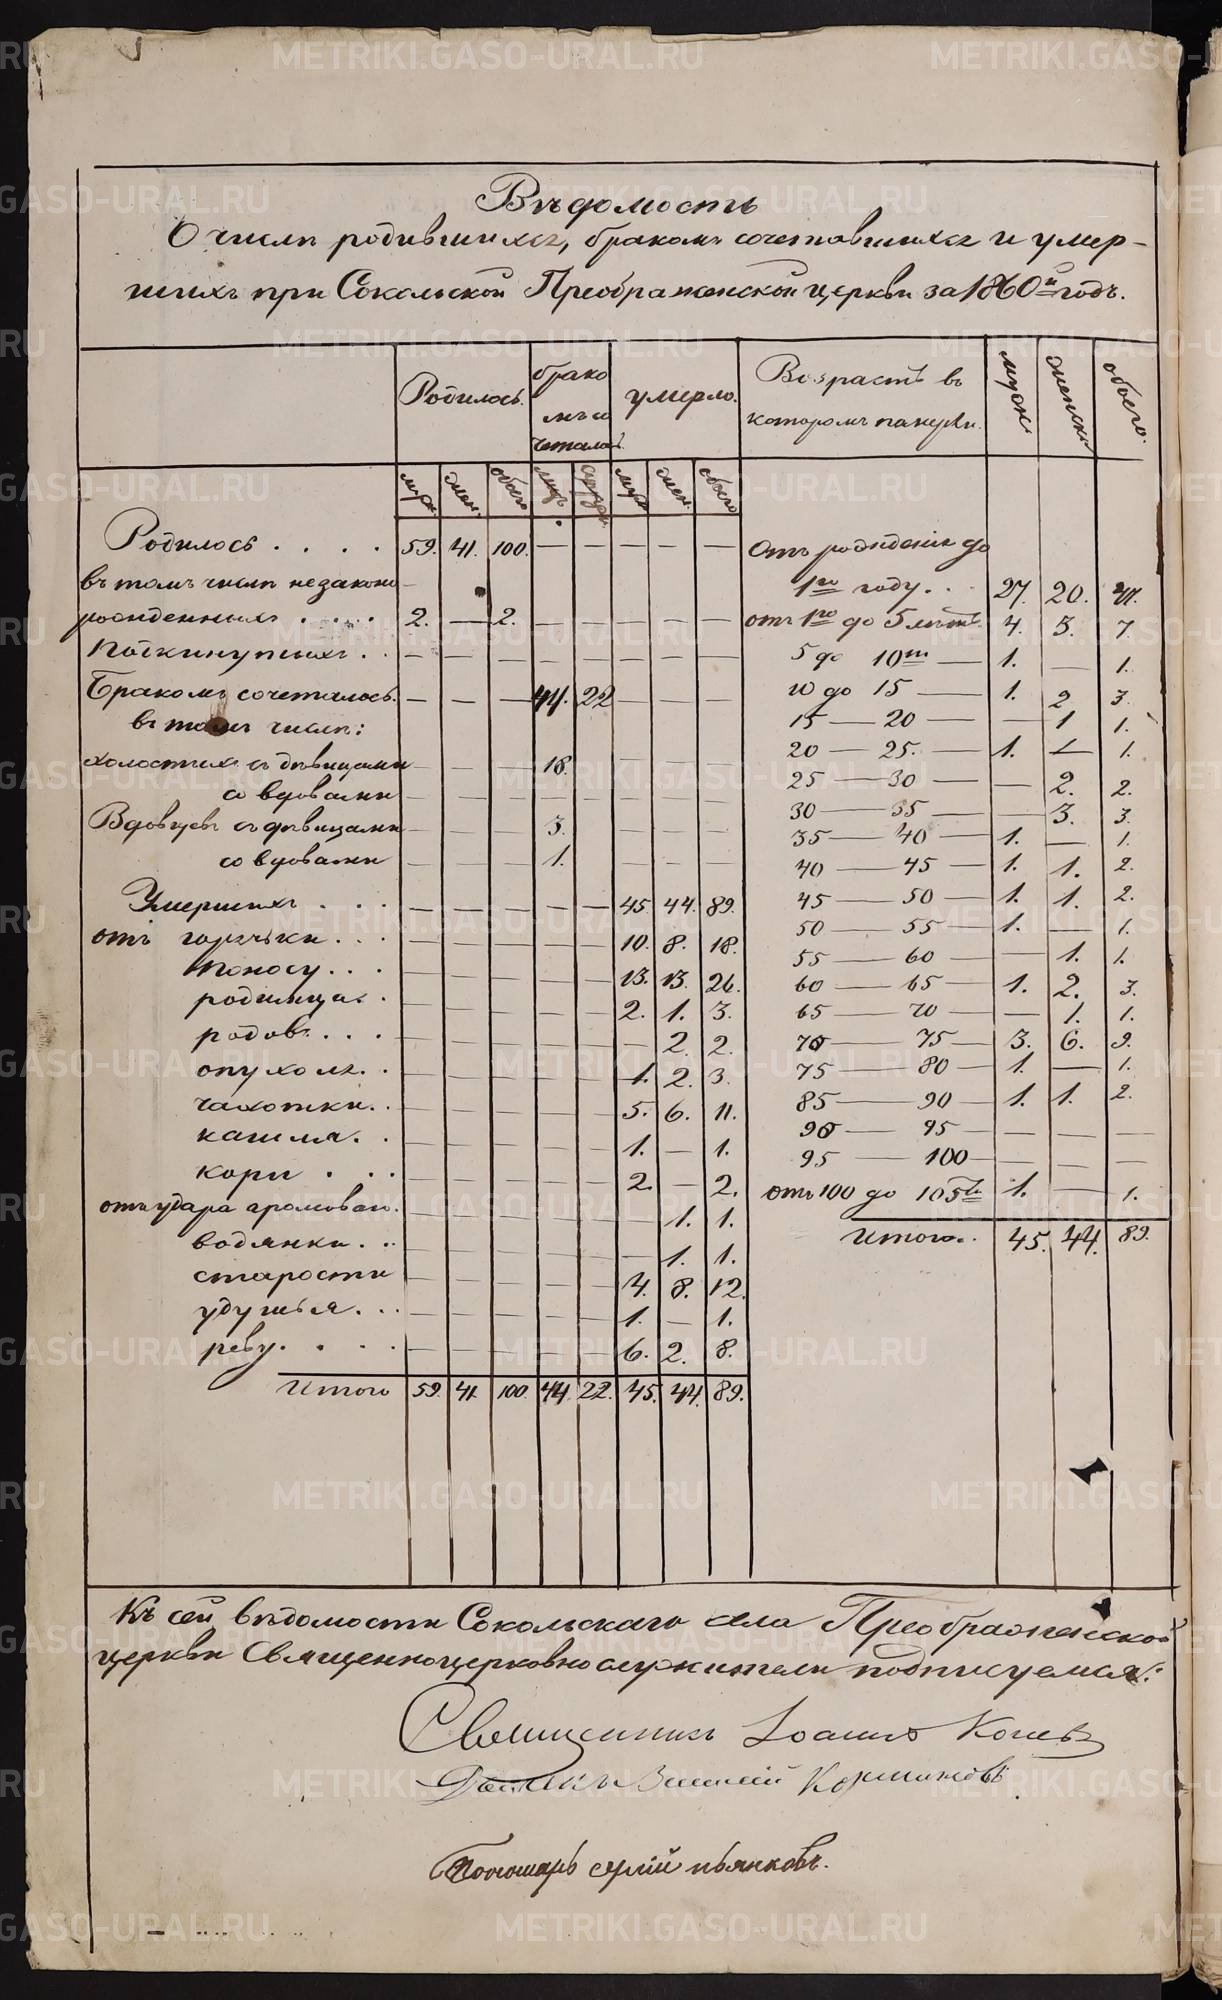 Вѣдомость
О числѣ родившихся, бракомъ сочетавшихся и умер-
шихъ при Сокольской Преображенской церкви за 1860й годъ.
Родилось. брако мъ со четалось умерло. Возрастъ въ которомъ померли. мужс. женск. обоего.
муж. жен. обоего лицъ муж. жен. обоего
Родилось . . . . 59. 41. 100. — — — — —
въ томъ числѣ незаконно
рожденныхъ . . . . 2. — 2. — — — — —
Подкинутыхъ . . — — — — — — — —
Бракомъ сочеталось. — — — 44. 22 — — —
въ томъ числѣ:
холостыхъ съ дѣвицами — — — 18. — — — —
со вдовами — — — — — — — —
Вдовцевъ съ дѣвицами — — — 3. — — — —
со вдовами — — — 1. — — — —
Умершихъ . . . — — — — — 45. 44. 89.
отъ горячки . . . — — — — — 10. 8. 18.
поносу . . . — — — — — 13. 13. 26.
родимца . — — — — — 2. 1. 3.
родовъ . . . — — — — — — 2. 2.
опухоли . . — — — — — 1. 2. 3.
чахотки . . — — — — — 5. 6. 11.
кашля . . — — — — — 1. — 1.
кори . . . — — — — — 2. — 2.
отъ удара громоваго. — — — — — 1. 1.
водянки . . . — — — — — — 1. 1.
старости — — — — — 4. 8. 12.
удушья . . . — — — — — 1. — 1.
реву . . . . — — — — — 6. 2. 8.
Итого 59. 41. 100. 44. 22. 45. 44. 89.
Отъ рожденія до
1го году . . 27. 20. 47.
отъ 1го до 5 лѣтъ 4. 3. 7.
5 до 10ти — 1. — 1.
10 до 15 — 1. 2 3.
15 — 20 — — 1 1.
20 — 25. — 1. — 1.
25 — 30 — — 2. 2.
30 — 35 — — 3. 3.
35 — 40 — 1. — 1.
40 — 45 — 1. 1. 2.
45 — 50 — 1. 1. 2.
50 — 55 — 1. — 1.
55 — 60 — — 1. 1.
60 — 65 — 1. 2. 3.
65 — 70 — — 1. 1.
70 — 75 — 3. 6. 9.
75 — 80 — 1. — 1.
85 — 90 — 1. 1. 2.
90 — 95 — — — —
95 — 100 — — — —
отъ 100 до 105ть 1. — 1.
Итого . . 45. 44. 89.
Къ сей вѣдомости Сокольскаго села Преображенской
церкви Священноцерковнослужители подписуемся:
Священникъ Іоаннъ
Пономарь Сергій Пьянковъ.
METRIKI.GASO-URAL.RU